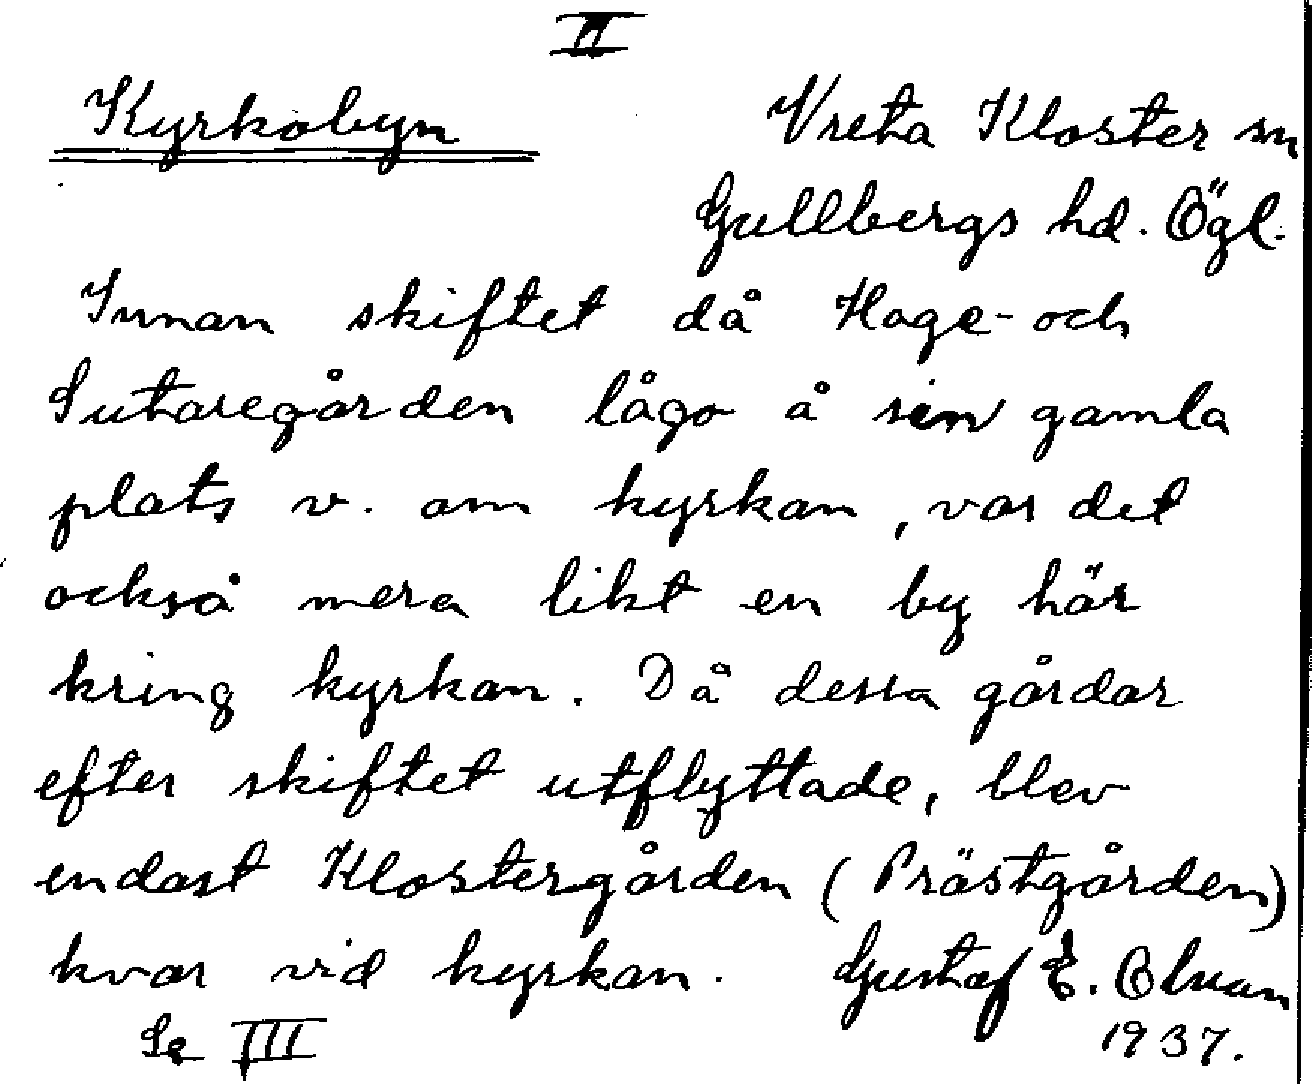 II
Kyrkobyn Vreta Kloster sn
Gullbergs hd. Ögl.
Innan skiftet då Hage- och
Sutaregården lågo å sin gamla
plats v. om kyrkan, var det
också mera likt en by här
kring kyrkan. Då dessa gårdar
efter skiftet utflyttade, blev
endast Klostergården (Prästgården)
kvar vid kyrkan. Gustaf E.
Se III 1937.